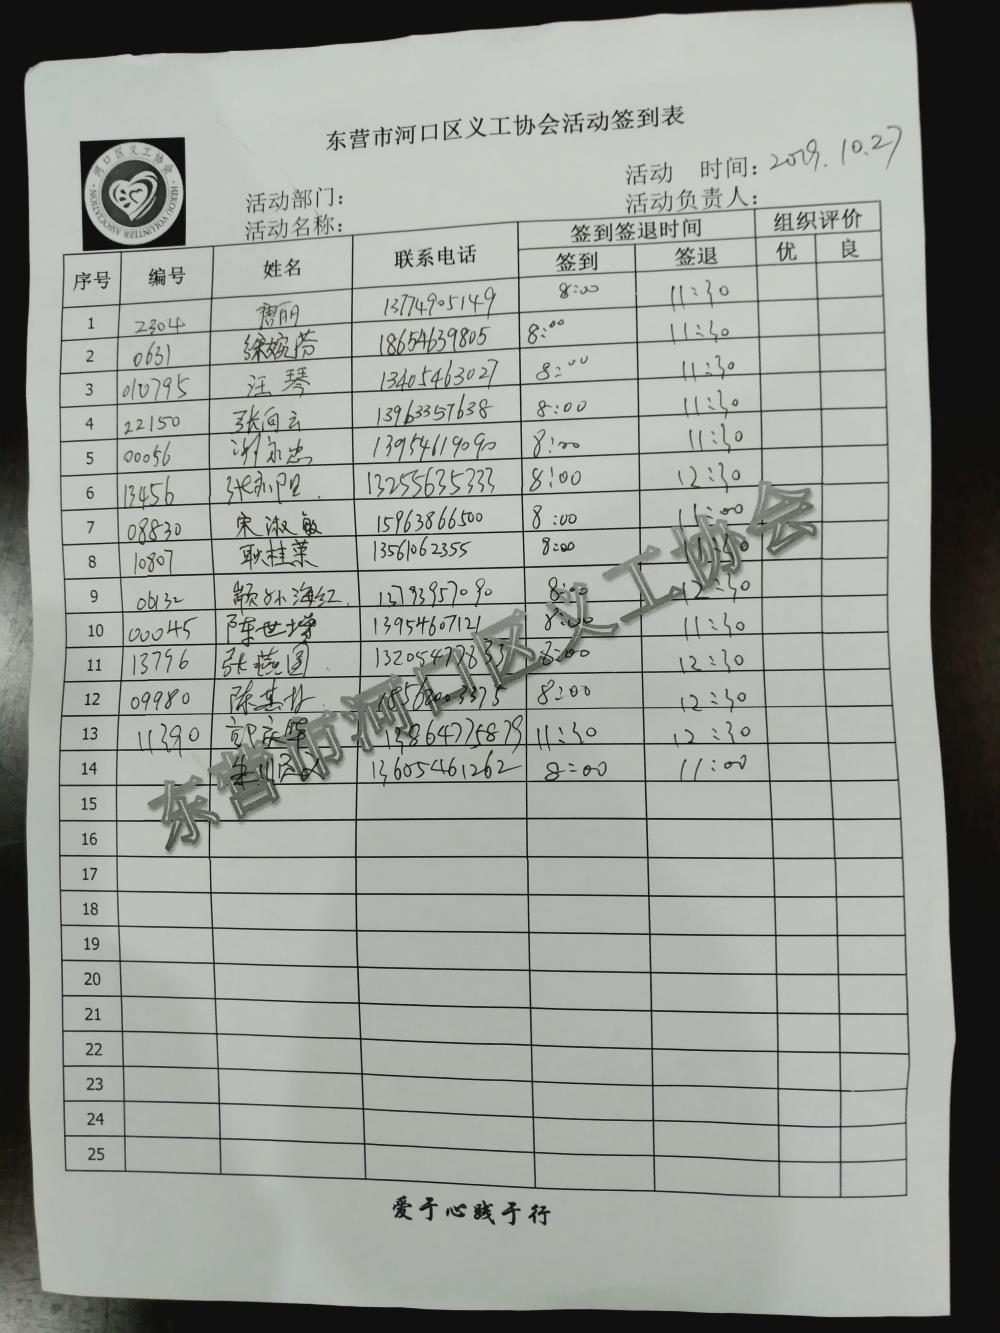 东营市河口区义工协会活动签到表
河口区义工协会
HEKOU VOLUNTEER ASSOCIATION
活动部门：
活动 时间：2019.10.27
活动名称：
活动负责人：
序号 编号 姓名 联系电话 签到签退时间 组织评价
签到 签退 优 良
1 2304 唐丽 13774905149 8:00 11:30
2 0631 徐婉芬 18654639805 8:00 11:30
3 010795 汪琴 13405463027 8:00 11:30
4 22150 张向云 13963357638 8:00 11:30
5 00056 谢永忠 13954619090 8:00 11:30
6 13456 13255635333 8:00 12:30
7 08830 宋淑敏 15963866500 8:00 11:00
8 10807 耿桂菜 13561062355 8:00 11:30
9 06132 海红 13793957090 8:00 12:30
10 00045 陈世增 13954607121 8:00 11:30
11 13796 张燕 8:00 12:30
12 09980 陈基 8:00 12:30
13 11390 13864775879 11:30 12:30
14 13605461262 8:00 11:00
15
16
17
18
19
20
21
22
23
24
25
东营市河口区义工协会
爱于心践于行